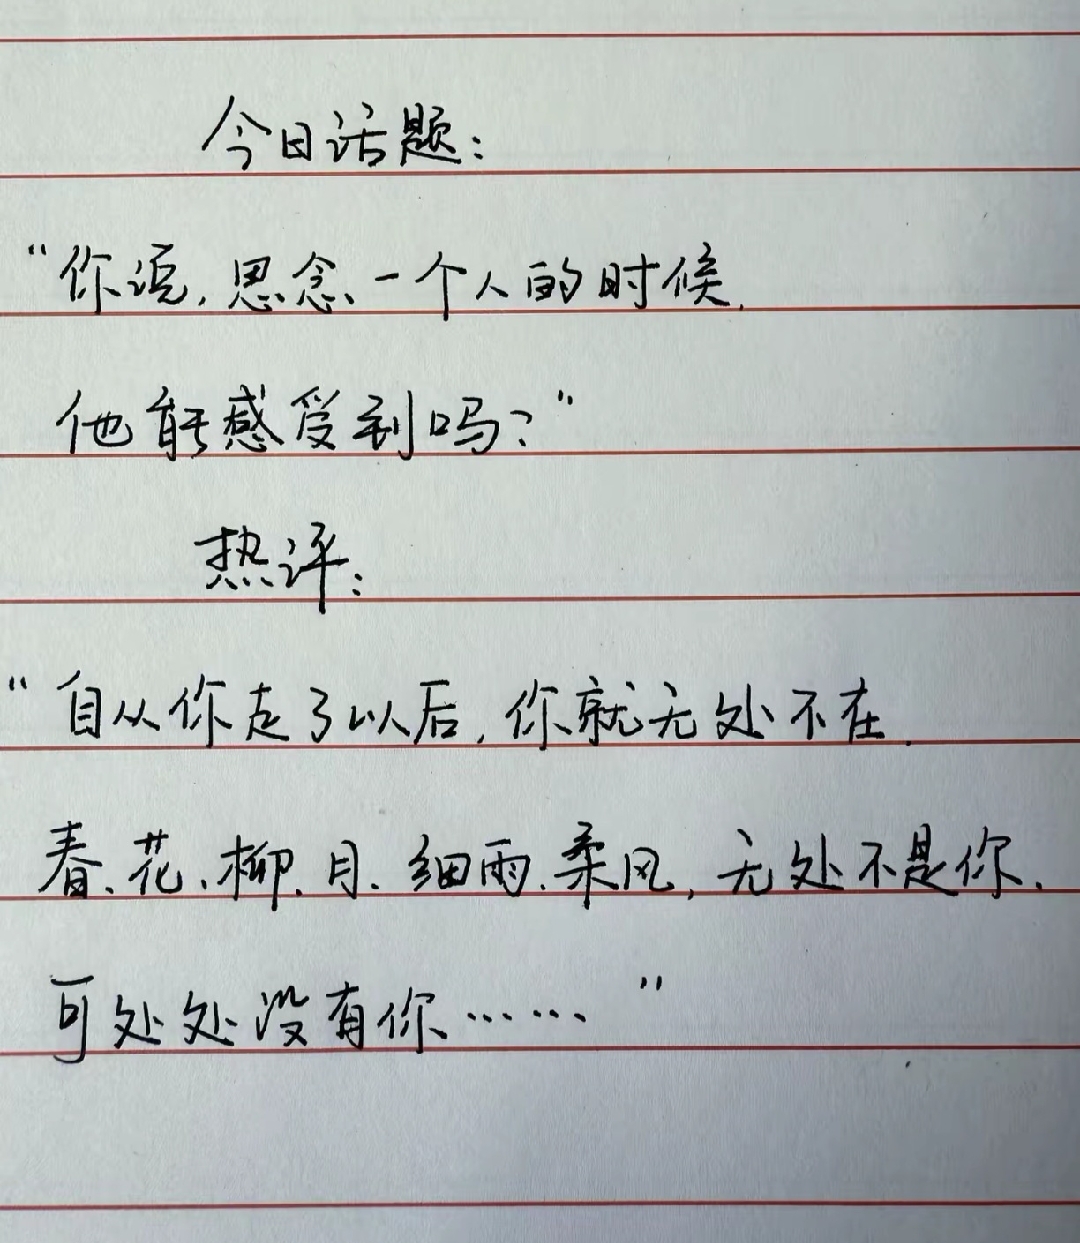 今日话题：
“你说，思念一个人的时候，
他能感受到吗？”
热评：
“自从你走了以后，你就无处不在，
春、花、柳、月、细雨、柔风，无处不是你，
可处处没有你……”